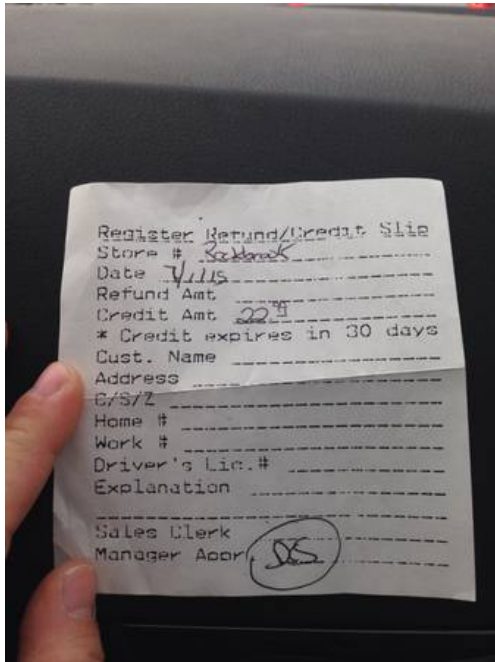 Register Refund/Credit Slip
Store # Rockbrook
Date 7/1/15
Refund Amt
Credit Amt 22.99
* Credit expires in 30 days
Cust. Name
Address
C/S/Z
Home #
Work #
Driver's Lic.#
Explanation
Sales Clerk
Manager Appr